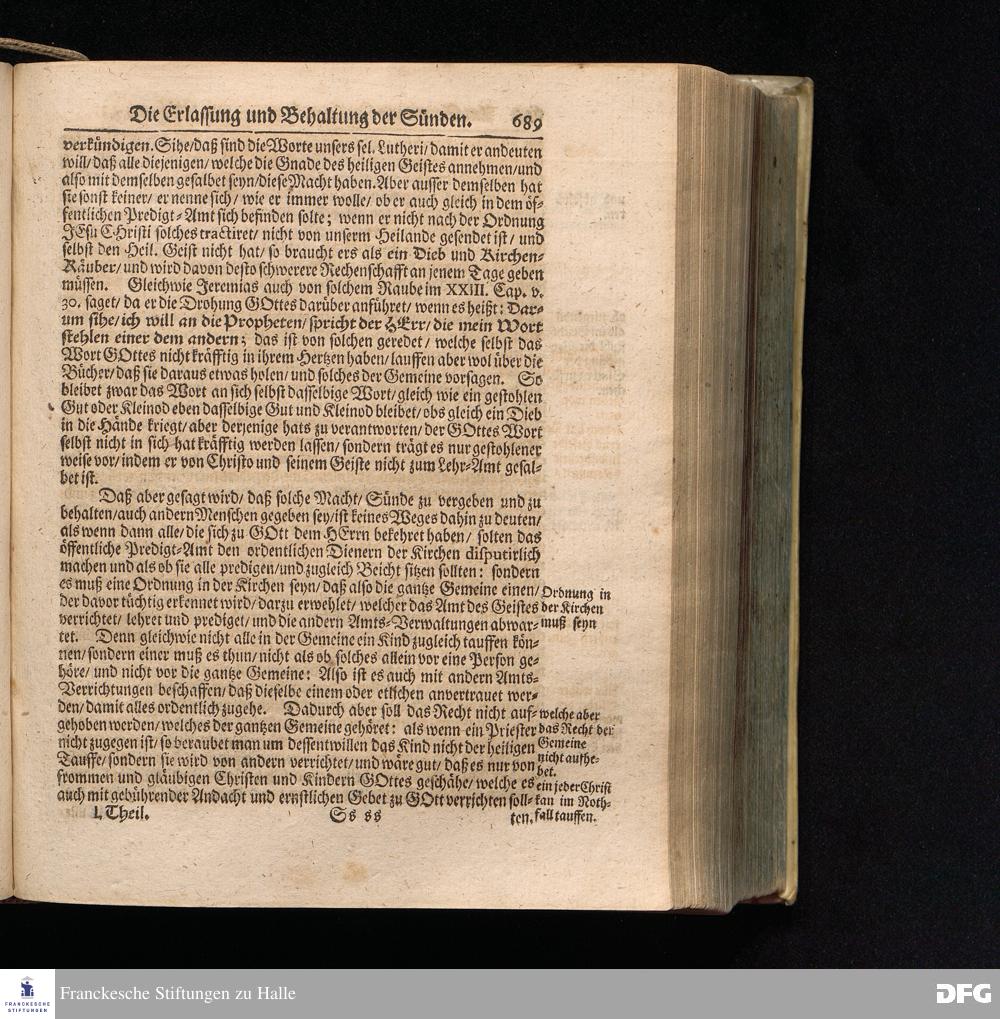 Die Erlassung und Behaltung der Sünden. 689
verkündigen. Sihe/daß sind die Worte unsers sel. Lutheri/damit er andeuten
will/daß alle diejenigen/welche die Gnade des heiligen Geistes annehmen/und
also mit demselben gesalbet seyn/diese Macht haben. Aber ausser demselben hat
sie sonst keiner/ er nenne sich/ wie er immer wolle/ ob er auch gleich in dem öf-
fentlichen Predigt-Amt sich befinden solte; wenn er nicht nach der Ordnung
JEsu CHristi solches tractiret/ nicht von unserm Heilande gesendet ist/ und
selbst den Heil. Geist nicht hat/ so braucht ers als ein Dieb und Kirchen-
Räuber/ und wird davon desto schwerere Rechenschafft an jenem Tage geben
müssen. Gleichwie Jeremias auch von solchem Raube im XXIII. Cap. v.
30. saget/ da er die Drohung GOttes darüber anführet/ wenn es heißt: Dar-
um sihe/ich will an die Propheten/ spricht der HErr/die mein Wort
stehlen einer dem andern; das ist von solchen geredet/ welche selbst das
Wort GOttes nicht kräfftig in ihrem Hertzen haben/lauffen aber wol über die
Bücher/daß sie daraus etwas holen/und solches der Gemeine vorsagen. So
bleibet zwar das Wort an sich selbst dasselbige Wort/gleich wie ein gestohlen
Gut oder Kleinod eben dasselbige Gut und Kleinod bleibet/obs gleich ein Dieb
in die Hände kriegt/aber derjenige hats zu verantworten/der GOttes Wort
selbst nicht in sich hat kräfftig werden lassen/ sondern trägt es nur gestohlener
weise vor/indem er von Christo und seinem Geiste nicht zum Lehr-Amt gesal-
bet ist.
Daß aber gesagt wird/ daß solche Macht/ Sünde zu vergeben und zu
behalten/auch andern Menschen gegeben sey/ist keines Weges dahin zu deuten/
als wenn dann alle/die sich zu GOtt dem HErrn bekehret haben/ solten das
öffentliche Predigt-Amt den ordentlichen Dienern der Kirchen disputirlich
machen und als ob sie alle predigen/und zugleich Beicht sitzen sollten: sondern
es muß eine Ordnung in der Kirchen seyn/daß also die gantze Gemeine einen/
der davor tüchtig erkennet wird/darzu erwehlet/welcher das Amt des Geistes
verrichtet/ lehret und prediget/und die andern Amts-Verwaltungen abwar-
tet. Denn gleichwie nicht alle in der Gemeine ein Kind zugleich tauffen kön-
nen/sondern einer muß es thun/nicht als ob solches allein vor eine Person ge-
höre/ und nicht vor die gantze Gemeine: Also ist es auch mit andern Amts-
Verrichtungen beschaffen/daß dieselbe einem oder etlichen anvertrauet wer-
den/damit alles ordentlich zugehe. Dadurch aber soll das Recht nicht auf-
gehoben werden/welches der gantzen Gemeine gehöret: als wenn ein Priester
nicht zugegen ist/ so beraubet man um dessentwillen das Kind nicht der heiligen
Tauffe/sondern sie wird von andern verrichtet/und wäre gut/ daß es nur von
frommen und gläubigen Christen und Kindern GOttes geschähe/ welche es
auch mit gebührender Andacht und ernstlichen Gebet zu GOtt verrichten soll-
I. Theil. Ss ss ten.
Ordnung in
der Kirchen
muß seyn
welche aber
das Recht der
Gemeine
nicht aufhe-
bet.
ein jeder Christ
kan im Noth-
fall tauffen.
FRANCKESCHE
STIFTUNGEN
Franckesche Stiftungen zu Halle
DFG